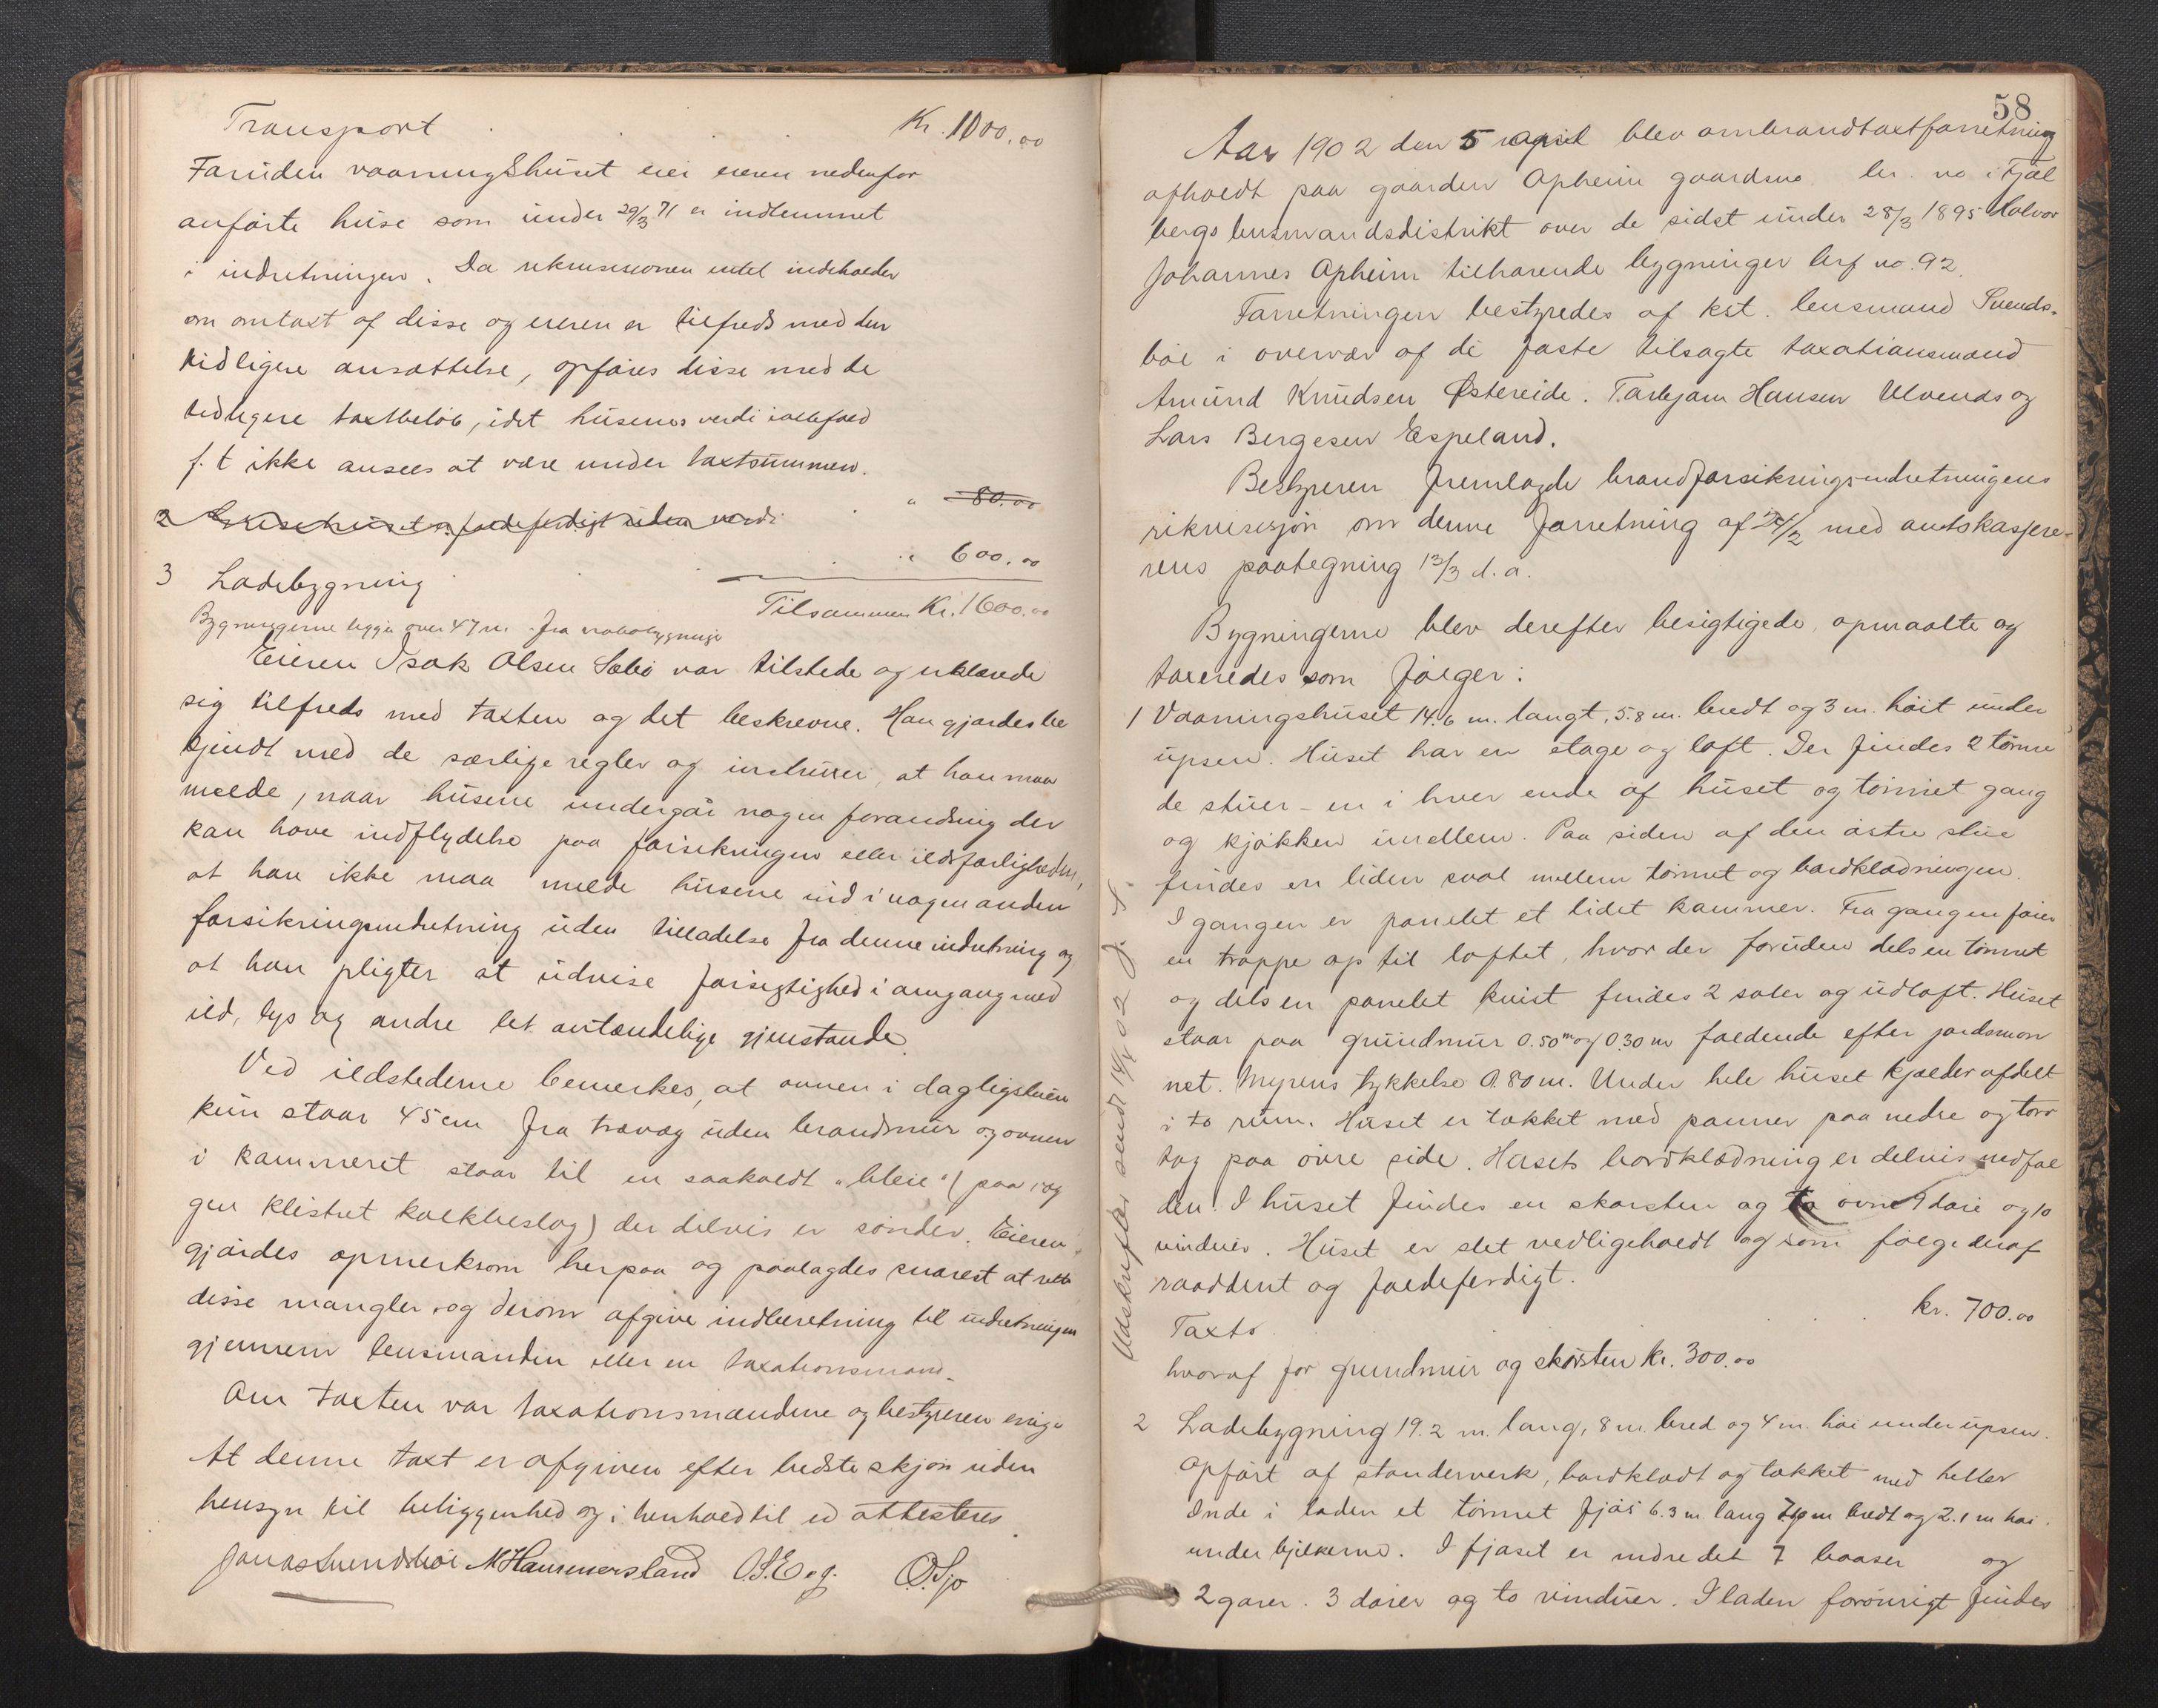 Transport Kr. 1000.00
Foruden vaaningshuset eier eieren nedenfor
anførte huse som under 29/3 71 er indlemmet
i indretningen. Da rekvisisionen intet indeholder
om omtaxt af disse og eieren er tilfreds med den
tidligere ansættelse, opføres disse med de
tidligere taxtbeløb, idet husenes verdi iallefald
f. t ikke ansees at være under taxtsummen.
2 faldeferdigt uden verdi " 80.00
3 Ladebygning " 600.00
Tilsammen Kr. 1600.00
Bygningerne ligger over 47 m. fra nabobygninge
Eieren Isak Olsen Sæbø var tilstede og erklærede
sig tilfreds med taxten og det beskrevne. Han gjordes be
kjendt med de særlige regler og instruxer, at han maa
melde, naar husene undergår nogen forandring der
kan have indflydelse paa forsikringen eller ildsfarligheden,
at han ikke maa melde husene ind i nogen anden
forsikringsindretning uden tilladelse fra denne indretning og
at han pligter at udvise forsigtighed i omgang med
ild, lys og andre let antændelige gjenstande.
Ved ildstederne bemerkes, at ovnen i dagligstuen
kun staar 45 cm fra trævæg uden brandmur og ovnen
i kammeret staar til en saakaldt "bleie" (paa væg
gen klistret kalkbeslag) der delvis er sønder. Eieren
gjordes opmerksom herpaa og paalagdes snarest at rette
disse mangler og derom afgive indberetning til indretningen
gjennem lensmanden eller en taxationsmand.
Om taxten var taxationsmændene og bestyreren enige
At denne taxt er afgiven efter bedste skjøn uden
hensyn til beliggenhed og i henhold til ed attesteres.
Jonas Svendsbøe M Hammersland O. S. Eeg. O. Sjo
58
Aar 1902 den 5 april blev ombrandtaxtforretning
afholdt paa gaarden Opheim gaardsno. br. no i Fjæl
bergs lensmandsdistrikt over de sidst under 28/3 1895 Halvor
Johannes Opheim tilhørende bygninger brf no. 92.
Forretningen bestyredes af kst. lensmand Svends-
bøe i overvær af de faste tilsagte taxationsmænd
Amund Knudsen Østereide. Torbjørn Hansen Ulvenes og
Lars Bergesen Espeland.
Bestyreren fremlagde brandforsikringsindretningens
rikvisisjon om denne forretning af 24/2 med amtskassere-
rens paategning 13/3 d. a.
Bygningerne blev derefter besigtigede, opmaalte og
taxeredes som følger:
1 Vaaningshuset 14.6 m. langt, 5.8 m. bredt og 3 m. høit under
upsen. Huset har en etage og loft. Der findes 2 tømre
de stuer - en i hver ende af huset og tømret gang
og kjøkken imellem. Paa siden af den østre stue
findes en liden sval mellem tømret og bordklædningen.
I gangen er panelet et lidet kammer. Fra gangen fører
en trappe op til loftet, hvor der foruden dels en tømret
og dels en panelet kvist findes 2 saler og udloft. Huset
staar paa grundmur 0.50 m og 0.30 m faldende efter jordsmon
net. Myrens tykkelse 0.80 m. Under hele huset kjælder afdelt
i to rum. Huset er tækket med panner paa nedre og torv
tag paa øvre side. Husets bordklædning er delvis nedfal
den. I huset findes en skorsten og to ovne 9 døre og 10
vinduer. Huset er slet vedligeholdt og som følge deraf
raaddent og faldeferdigt.
Taxt kr. 700.00
hvoraf for grundmur og skorsten kr. 300.00
2 Ladebygning 19.2 m. lang, 8 m. bred og 4 m. høi under upsen.
Opført af standerverk, bordklædt og tækket med heller
Inde i laden et tømret fjøs 6.3 m lang m bredt og 2.1 m høi.
under bjelkerne. I fjøset er indredet 7 baaser og
2 garer. 3 dører og to vinduer. I laden forøvrigt findes
Udskrifter sendt 14/4 02 J. S.